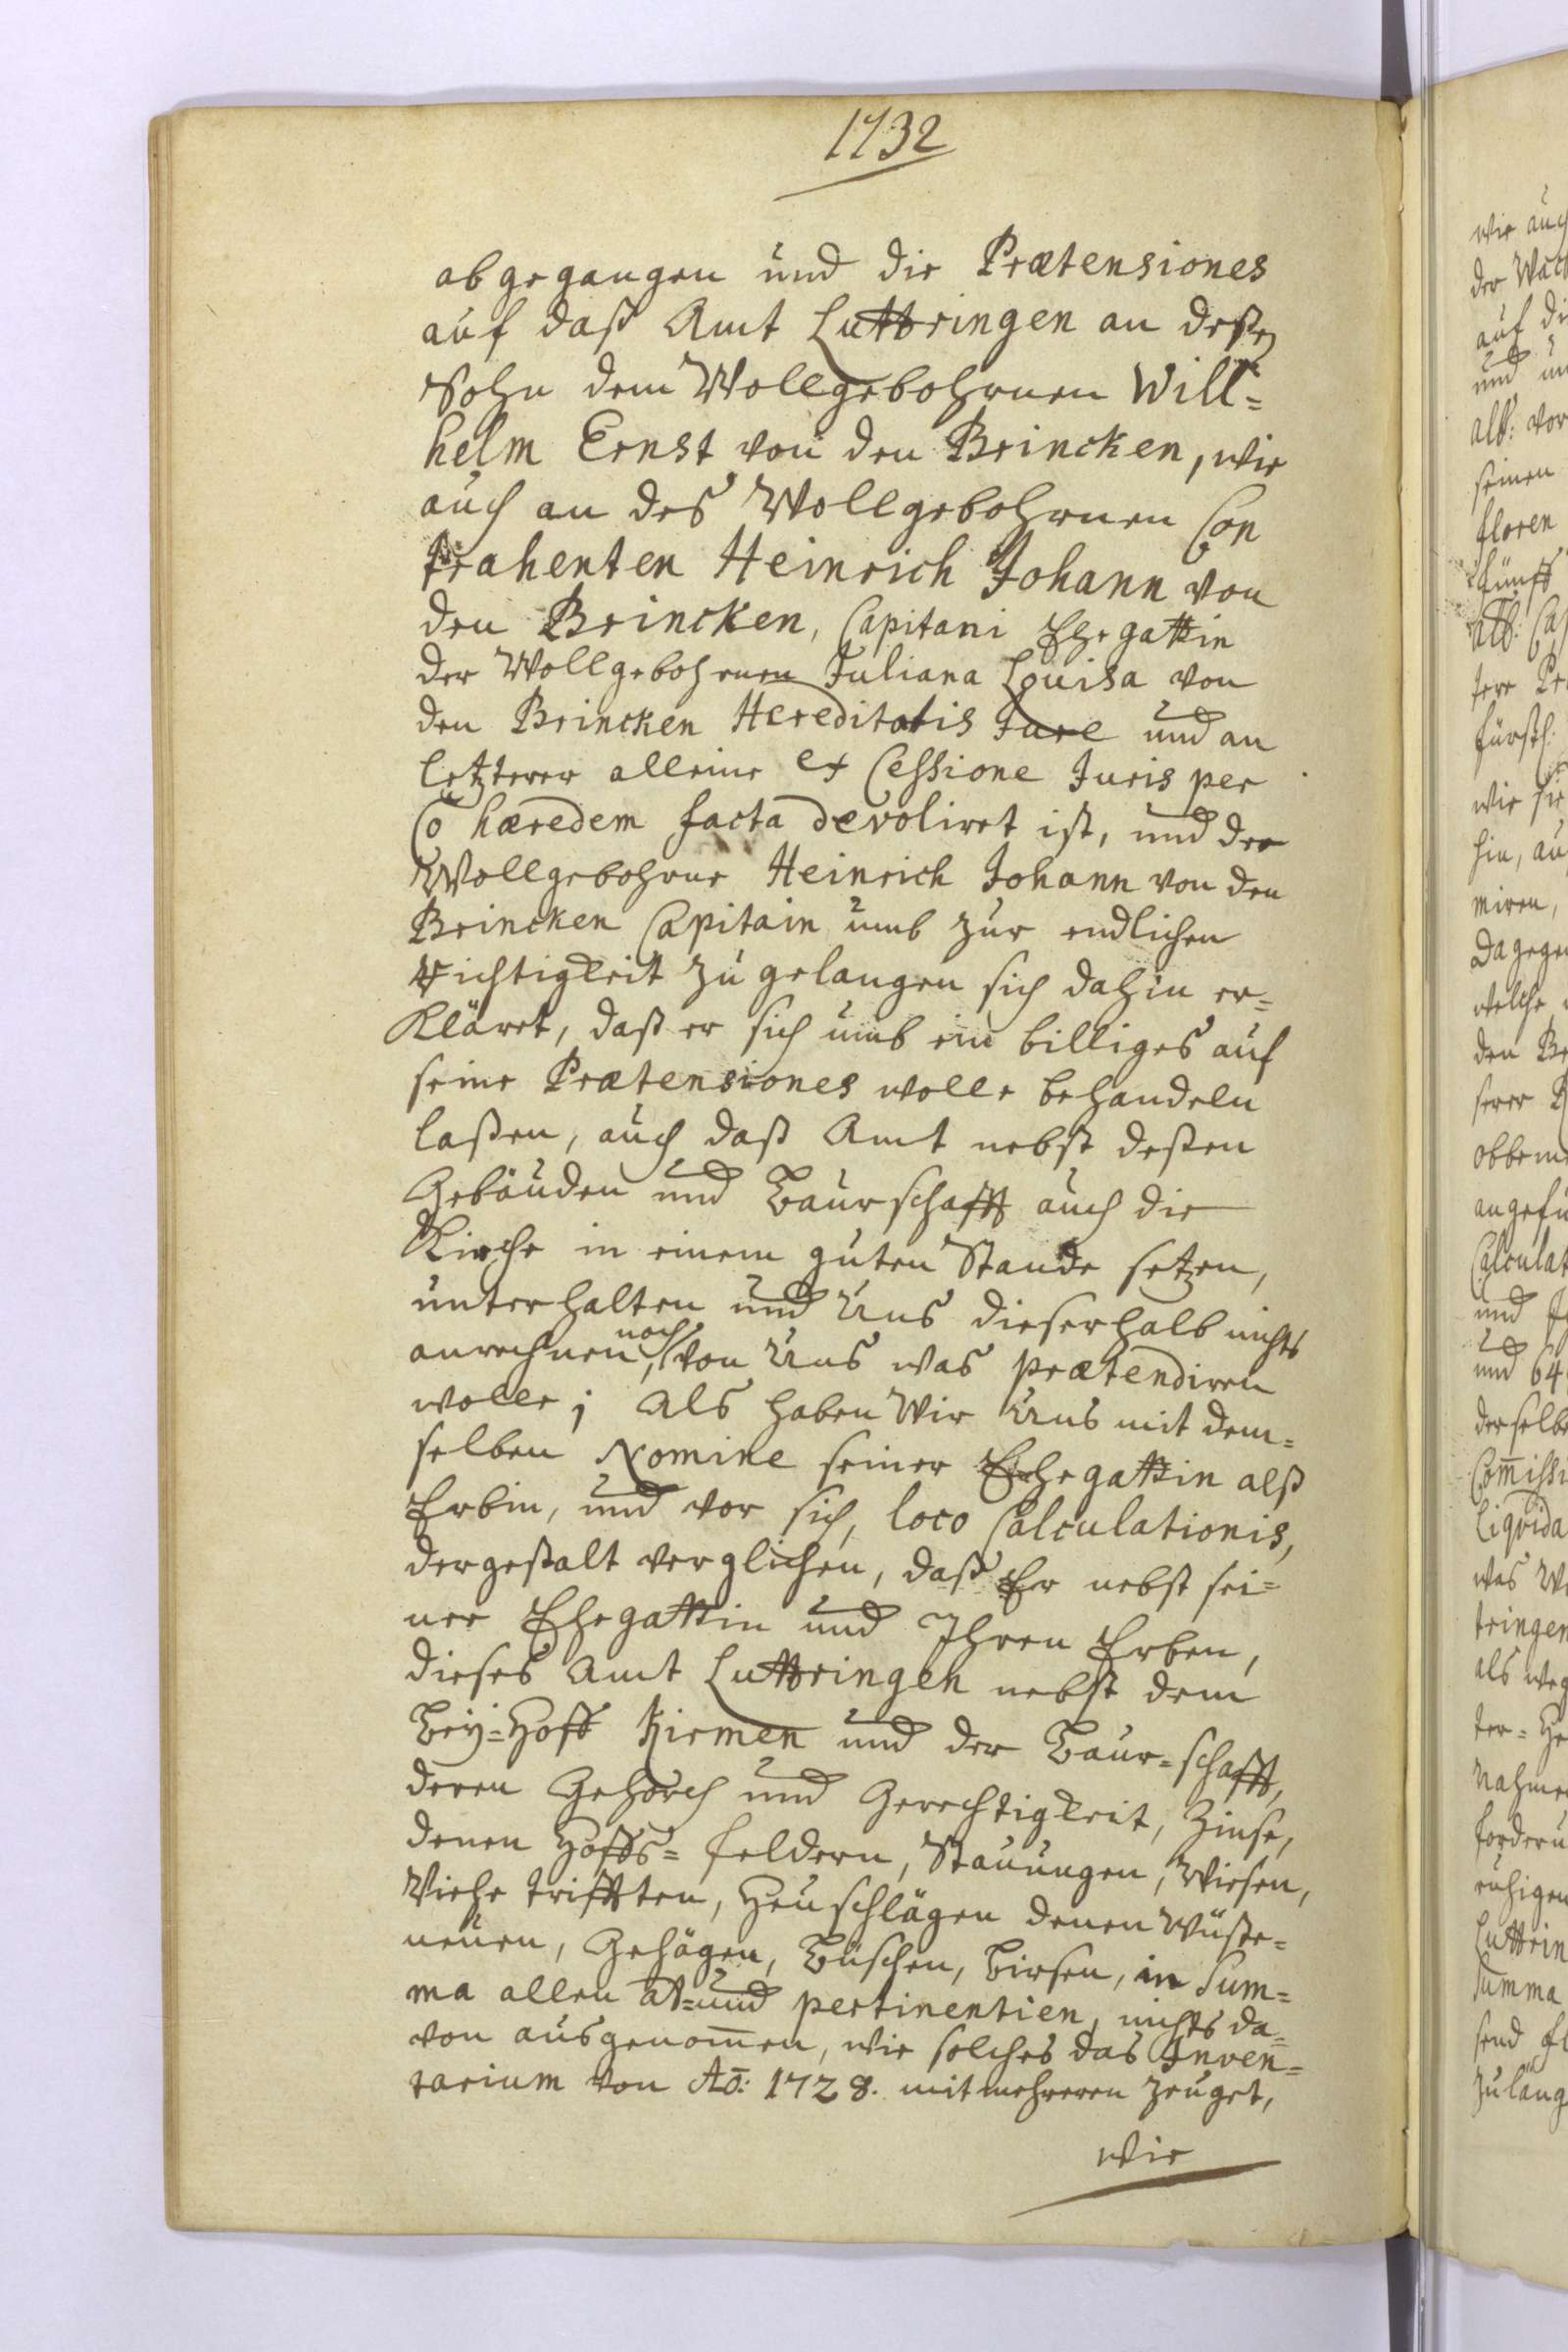 1732
abgegangen und die Prætensiones
auf daß Amt Luttringen an deßen
Sohn dem Wollgebohrnen Will=
helm Ernst von den Brincken, wie
auch an des Wollgebohrnen Con
trahenten Heinrich Johann von
den Brincken, Capitani Ehegattin
der Wollgebohrnen Juliana Louisa von
den Brincken Hereditatis Jure und an
letzterer alleine ex Cessione Juris per
Co hæredem facta devoliret ist, und der
Wollgebohrne Heinrich Johann von den
Brincken Capitain umb zur endlichen
Richtigkeit zu gelangen sich dahin er=
kläret, daß er sich umb ein billiges auf
seine Prætensiones wolle behandeln
laßen, auch daß Amt nebst deßen
Gebäuden und Baurschafft auch die
Kirche in einem guten Stande setzen,
unterhalten und Uns dieserhalb nichts
anrechnen, noch von Uns was prætendiren
wolle; Als haben Wir Uns mit dem=
selben Nomine seiner Ehegattin alß
Erbin, und vor sich, loco Calculationis,
dergestalt verglichen, daß Er nebst sei=
ner Ehegattin und Ihren Erben,
dieses Amt Luttringen nebst dem
Bey=Hoff Kirmen und der Baur=schafft,
deren Gehorch und Gerechtigkeit, Zinse,
denen Hoffs=feldern, Stauungen, Wiesen,
Viehe trifften, Heuschlägen denen Wüste=
neuen, Gehägen, Büschen, Birsen, in Sum=
ma allen At=und pertinentien, nichts da=
von ausgenom̅en, wie solches das Inven=
tarium von Ao̅: 1728. mit mehreren zeuget,
wie
wie auch
der
auf di
und
alb: vor
seinen
floren
fünff
alb:
tere
fürstl:
wie sie
hin,
miren,
Dagegen
welche
den
serer
obbem
angefü
Calculat
und
und 64
derselbe
Com̅issi
Liqvida
was
tringen
als weg
ter=
Nahmen
forderu
ruhigen
Luttrin
Summa
send
zuläng